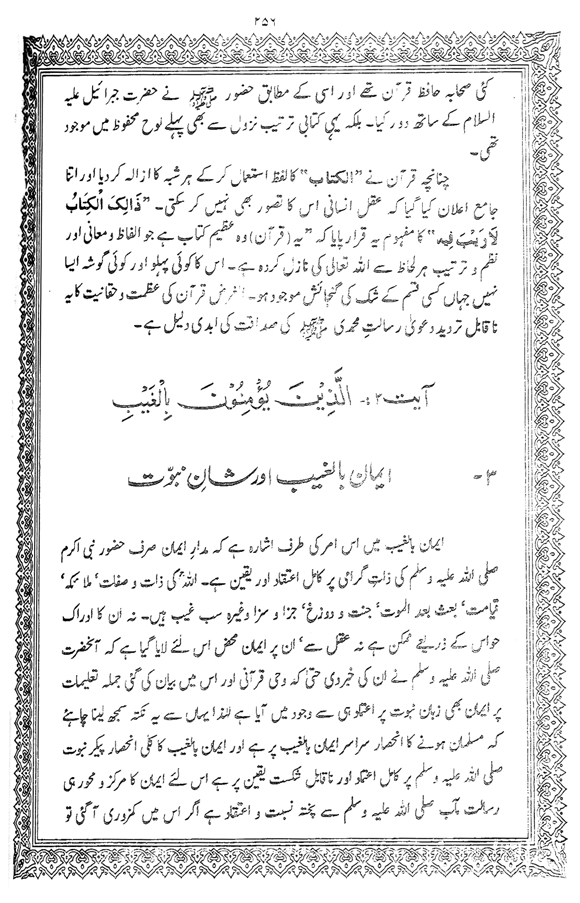 ۲۵۶
کئی صحابہ حافظ قرآن تھے اور اسی کے مطابق حضور ﷺ نے حضرت جبرائیل علیہ
السلام کے ساتھ دور کیا۔ بلکہ یہی کتابی ترتیب نزول سے بھی پہلے لوح محفوظ میں موجود
تھی۔
چنانچہ قرآن نے "الکتاب" کا لفظ استعمال کر کے ہر شبہ کا ازالہ کر دیا اور اتنا
جامع اعلان کیا گیا کہ عقل انسانی اس کا تصور بھی نہیں کر سکتی۔ "ذَالِکَ الْکِتَابُ
لَارَیْبَ فِیہِ" کا مفہوم یہ قرار پایا کہ "یہ (قرآن) وہ عظیم کتاب ہے جو الفاظ و معانی اور
نظم و ترتیب ہر لحاظ سے اللہ تعالیٰ کی نازل کردہ ہے۔ اس کا کوئی پہلو اور کوئی گوشہ ایسا
نہیں جہاں کسی قسم کے شک کی گنجائش موجود ہو۔ الغرض قرآن کی عظمت و حقانیت کا یہ
ناقابل تردید دعویٰ رسالتِ محمدی ﷺ کی صداقت کی ابدی دلیل ہے۔
آیت ۲:۔ الَّذِیْنَ یُؤْمِنُوْنَ بِالْغَیْبِ
۳۔ ایمان بالغیب اور شانِ نبوّت
ایمان بالغیب میں اس امر کی طرف اشارہ ہے کہ مدارِ ایمان صرف حضور نبی اکرم
صلی اللہ علیہ وسلم کی ذاتِ گرامی پر کامل اعتقاد اور یقین ہے۔ اللہ کی ذات و صفات، ملائکہ،
قیامت، بعث بعد الموت، جنت و دوزخ، جزا و سزا وغیرہ سب غیب ہیں۔ نہ ان کا ادراک
حواس کے ذریعے ممکن ہے نہ عقل سے، ان پر ایمان محض اس لئے لایا گیا ہے کہ آنحضرت
صلی اللہ علیہ وسلم نے ان کی خبر دی حتیٰ کہ وحی قرآنی اور اس میں بیان کی گئی جملہ تعلیمات
پر ایمان بھی زبان نبوت پر اعتماد ہی سے وجود میں آیا ہے لہٰذا یہاں سے یہ نکتہ سمجھ لینا چاہئے
کہ مسلمان ہونے کا انحصار سراسر ایمان بالغیب پر ہے اور ایمان بالغیب کا کلی انحصار پیکر نبوت
صلی اللہ علیہ وسلم پر کامل اعتماد اور ناقابل شکست یقین پر ہے اس لئے ایمان کا مرکز و محور ہی
رسالت مآب صلی اللہ علیہ وسلم سے پختہ نسبت و اعتقاد ہے اگر اس میں کمزوری آ گئی تو